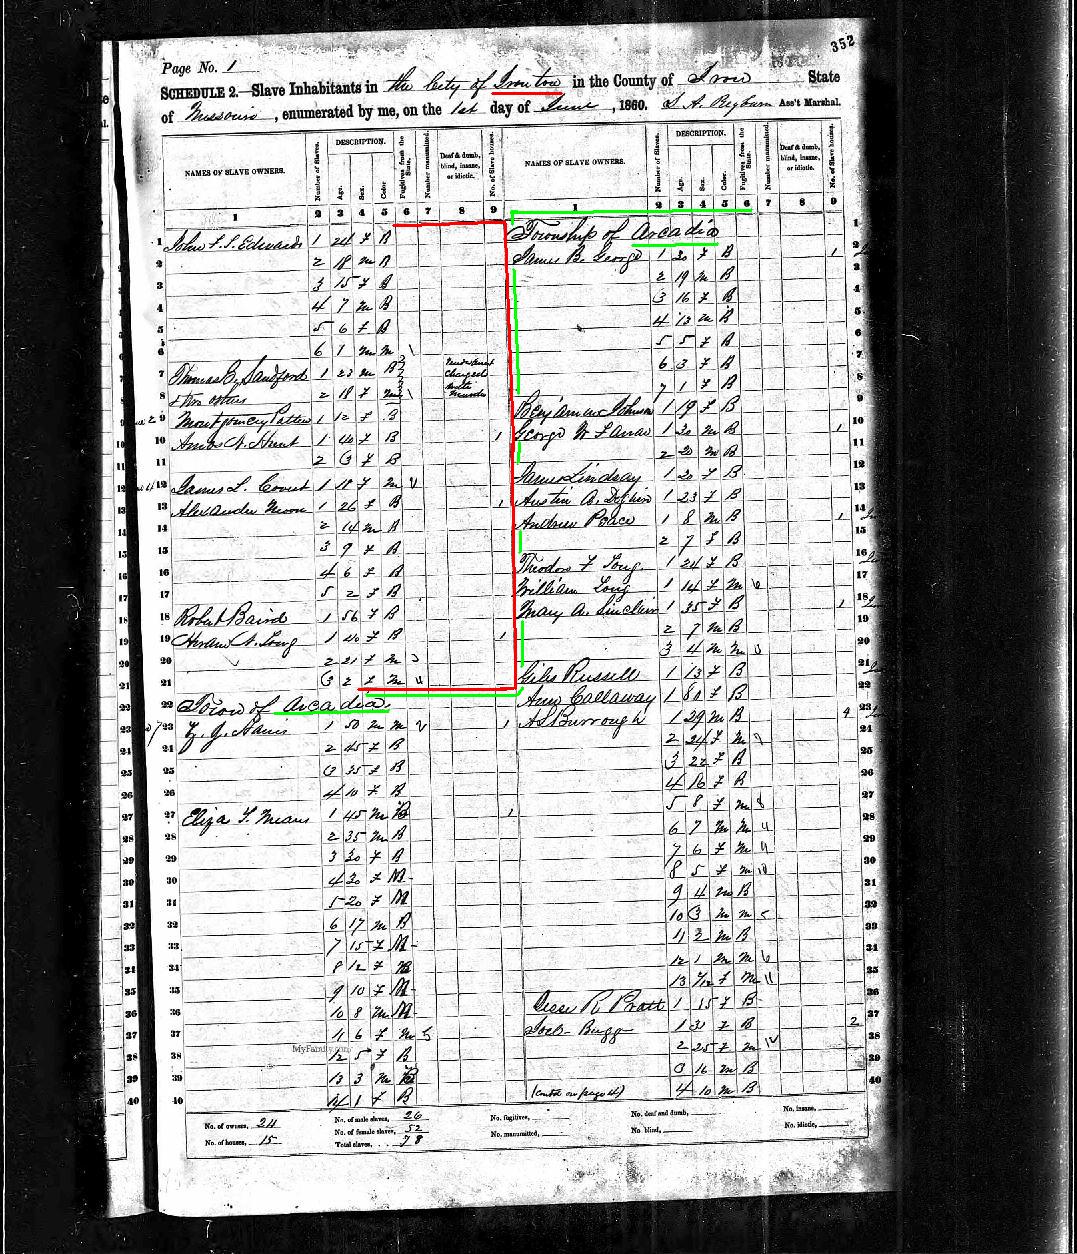 352
Page No. 1
SCHEDULE 2.—Slave Inhabitants in the City of Ironton in the County of Iron State
of Missouri, enumerated by me, on the 1st day of June, 1860. Ass't Marshal.
NAMES OF SLAVE OWNERS. Number of Slaves. DESCRIPTION. Age. Sex. Color. Fugitives from the State. Number manumitted. Deaf & dumb, blind, insane, or idiotic. No. of Slave houses. NAMES OF SLAVE OWNERS. Number of Slaves. DESCRIPTION. Age. Sex. Color. Fugitives from the State. Number manumitted. Deaf & dumb, blind, insane, or idiotic. No. of Slave houses.
1 2 3 4 5 6 7 8 9 1 2 3 4 5 6 7 8 9
1 John F. S. Edwards 1 24 F B
2 2 18 m B
3 3 15 F B
4 4 7 m B
5 5 6 F B
6 6 1 m m
7 Thomas C. Sandford 1 23 m B charged
8 & two others 2 18 F m with
9 Montgomery 1 12 F B
10 Amos N. 1 40 F B 1
11 2 3 F B
12 James L. Covert 1 18 F m
13 Alexander 1 26 F B 1
14 2 14 m B
15 3 9 F B
16 4 6 F B
17 5 2 F B
18 Robert Baird 1 56 F B
19 Hiram N. Long 1 40 F B 1
20 2 21 F m
21 3 2 F m
22 Town of Arcadia
23 1 50 m m 1
24 2 45 F B
25 3 35 F B
26 4 10 F B
27 Eliza T. Means 1 45 m B 1
28 2 35 m B
29 3 30 F B
30 4 30 F M
31 5 20 F M
32 6 17 m B
33 7 15 F M
34 8 12 F B
35 9 10 F M
36 10 8 m M
37 11 6 F m
38 12 5 F B
39 13 3 m B
40 14 1 F B
MyFamily.com
1 Township of Arcadia
2 James B. George 1 30 F B 1
2 19 m B
3 16 F B
4 13 m B
5 5 F B
6 3 F B
7 1 F B
Benjamin Johnson 1 19 F B
George W Farrar 1 30 m B 1
2 20 m B
James Lindsay 1 20 F B
Austin A. 1 23 F B
Andrew Peace 1 8 m B 1
2 7 F B
Theodore F Tong 1 24 F B
William Long 1 14 F m
Mary A. Sinclair 1 35 F B 1
2 7 m B
3 4 m m
Giles Russell 1 13 F B
Ann Callaway 1 60 F B
A S Burrough 1 29 m B 4
2 24 F m
3 22 F B
4 16 F B
5 8 F m
6 7 m m
7 6 F m
8 5 F m
9 4 m B
10 3 m m
11 2 m B
12 1 m m
13 7/12 F m
Jesse R Pratt 1 15 F B
Jacob Bugg 1 31 F B 2
2 25 F m
3 16 m B
4 10 m B
No. of owners, 24 No. of male slaves, 26 No. fugitives, No. deaf and dumb, No. insane,
No. of houses, 15 No. of female slaves, 52 No. manumitted, No. blind, No. idiotic,
Total slaves, 78